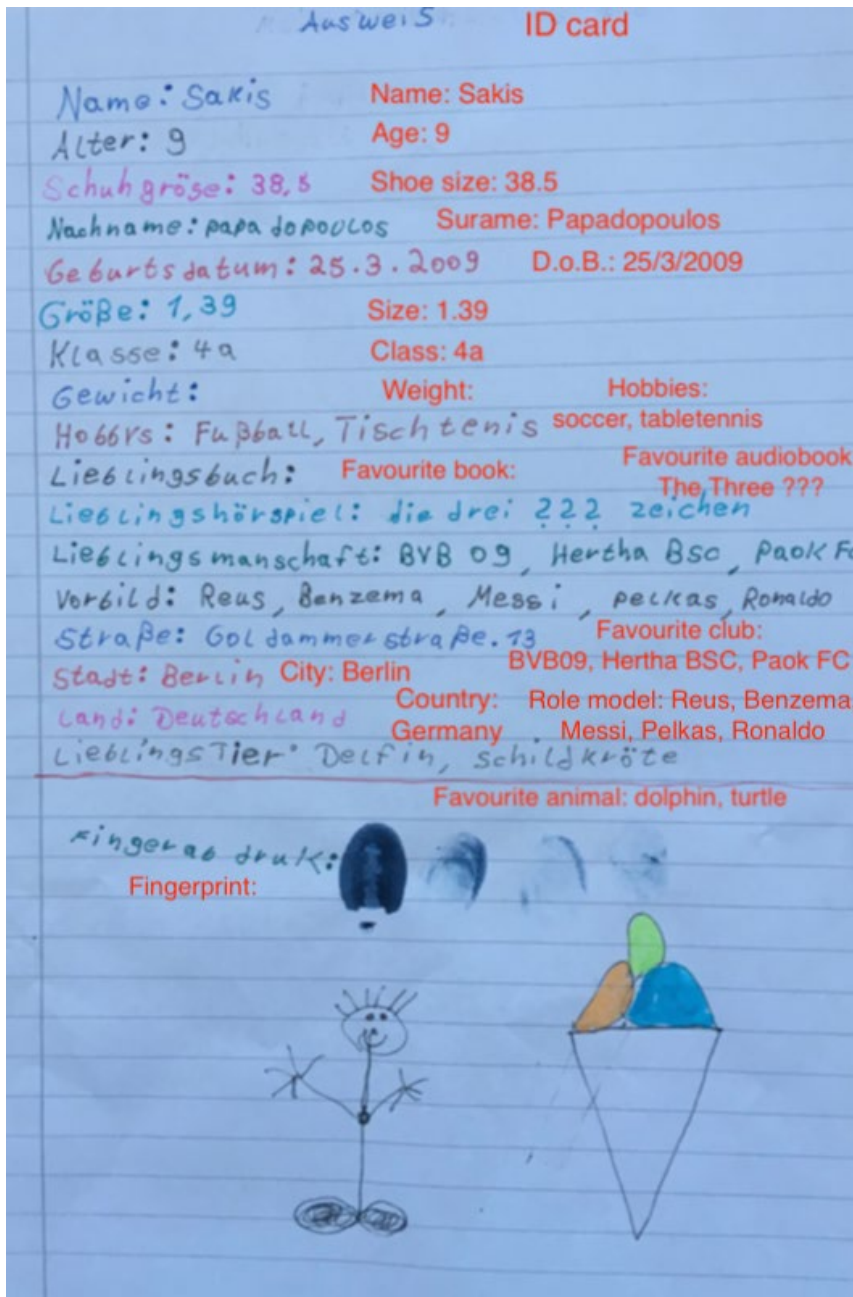 Ausweis ID card
Name: Sakis Name: Sakis
Alter: 9 Age: 9
Schuhgröse: 38,5 Shoe size: 38.5
Nachname: papadopoulos Surame: Papadopoulos
Geburtsdatum: 25.3.2009 D.o.B.: 25/3/2009
Größe: 1,39 Size: 1.39
Klasse: 4a Class: 4a
Gewicht: Weight: Hobbies:
Hobbys: Fußball, Tischtenis soccer, tabletennis
Lieblingsbuch: Favourite book: Favourite audiobook
The Three ???
Lieblingshörspiel: die drei ??? zeichen
Lieblingsmanschaft: BVB 09, Hertha BSC, Paok FC
Vorbild: Reus, Benzema, Messi, pelkas, Ronaldo
Straße: Goldammerstraße. 13 Favourite club:
BVB09, Hertha BSC, Paok FC
Stadt: Berlin City: Berlin
Country: Role model: Reus, Benzema
Land: Deutschland Germany Messi, Pelkas, Ronaldo
LieblingsTier: Delfin, schildkröte
Favourite animal: dolphin, turtle
Fingerabdruk:
Fingerprint: